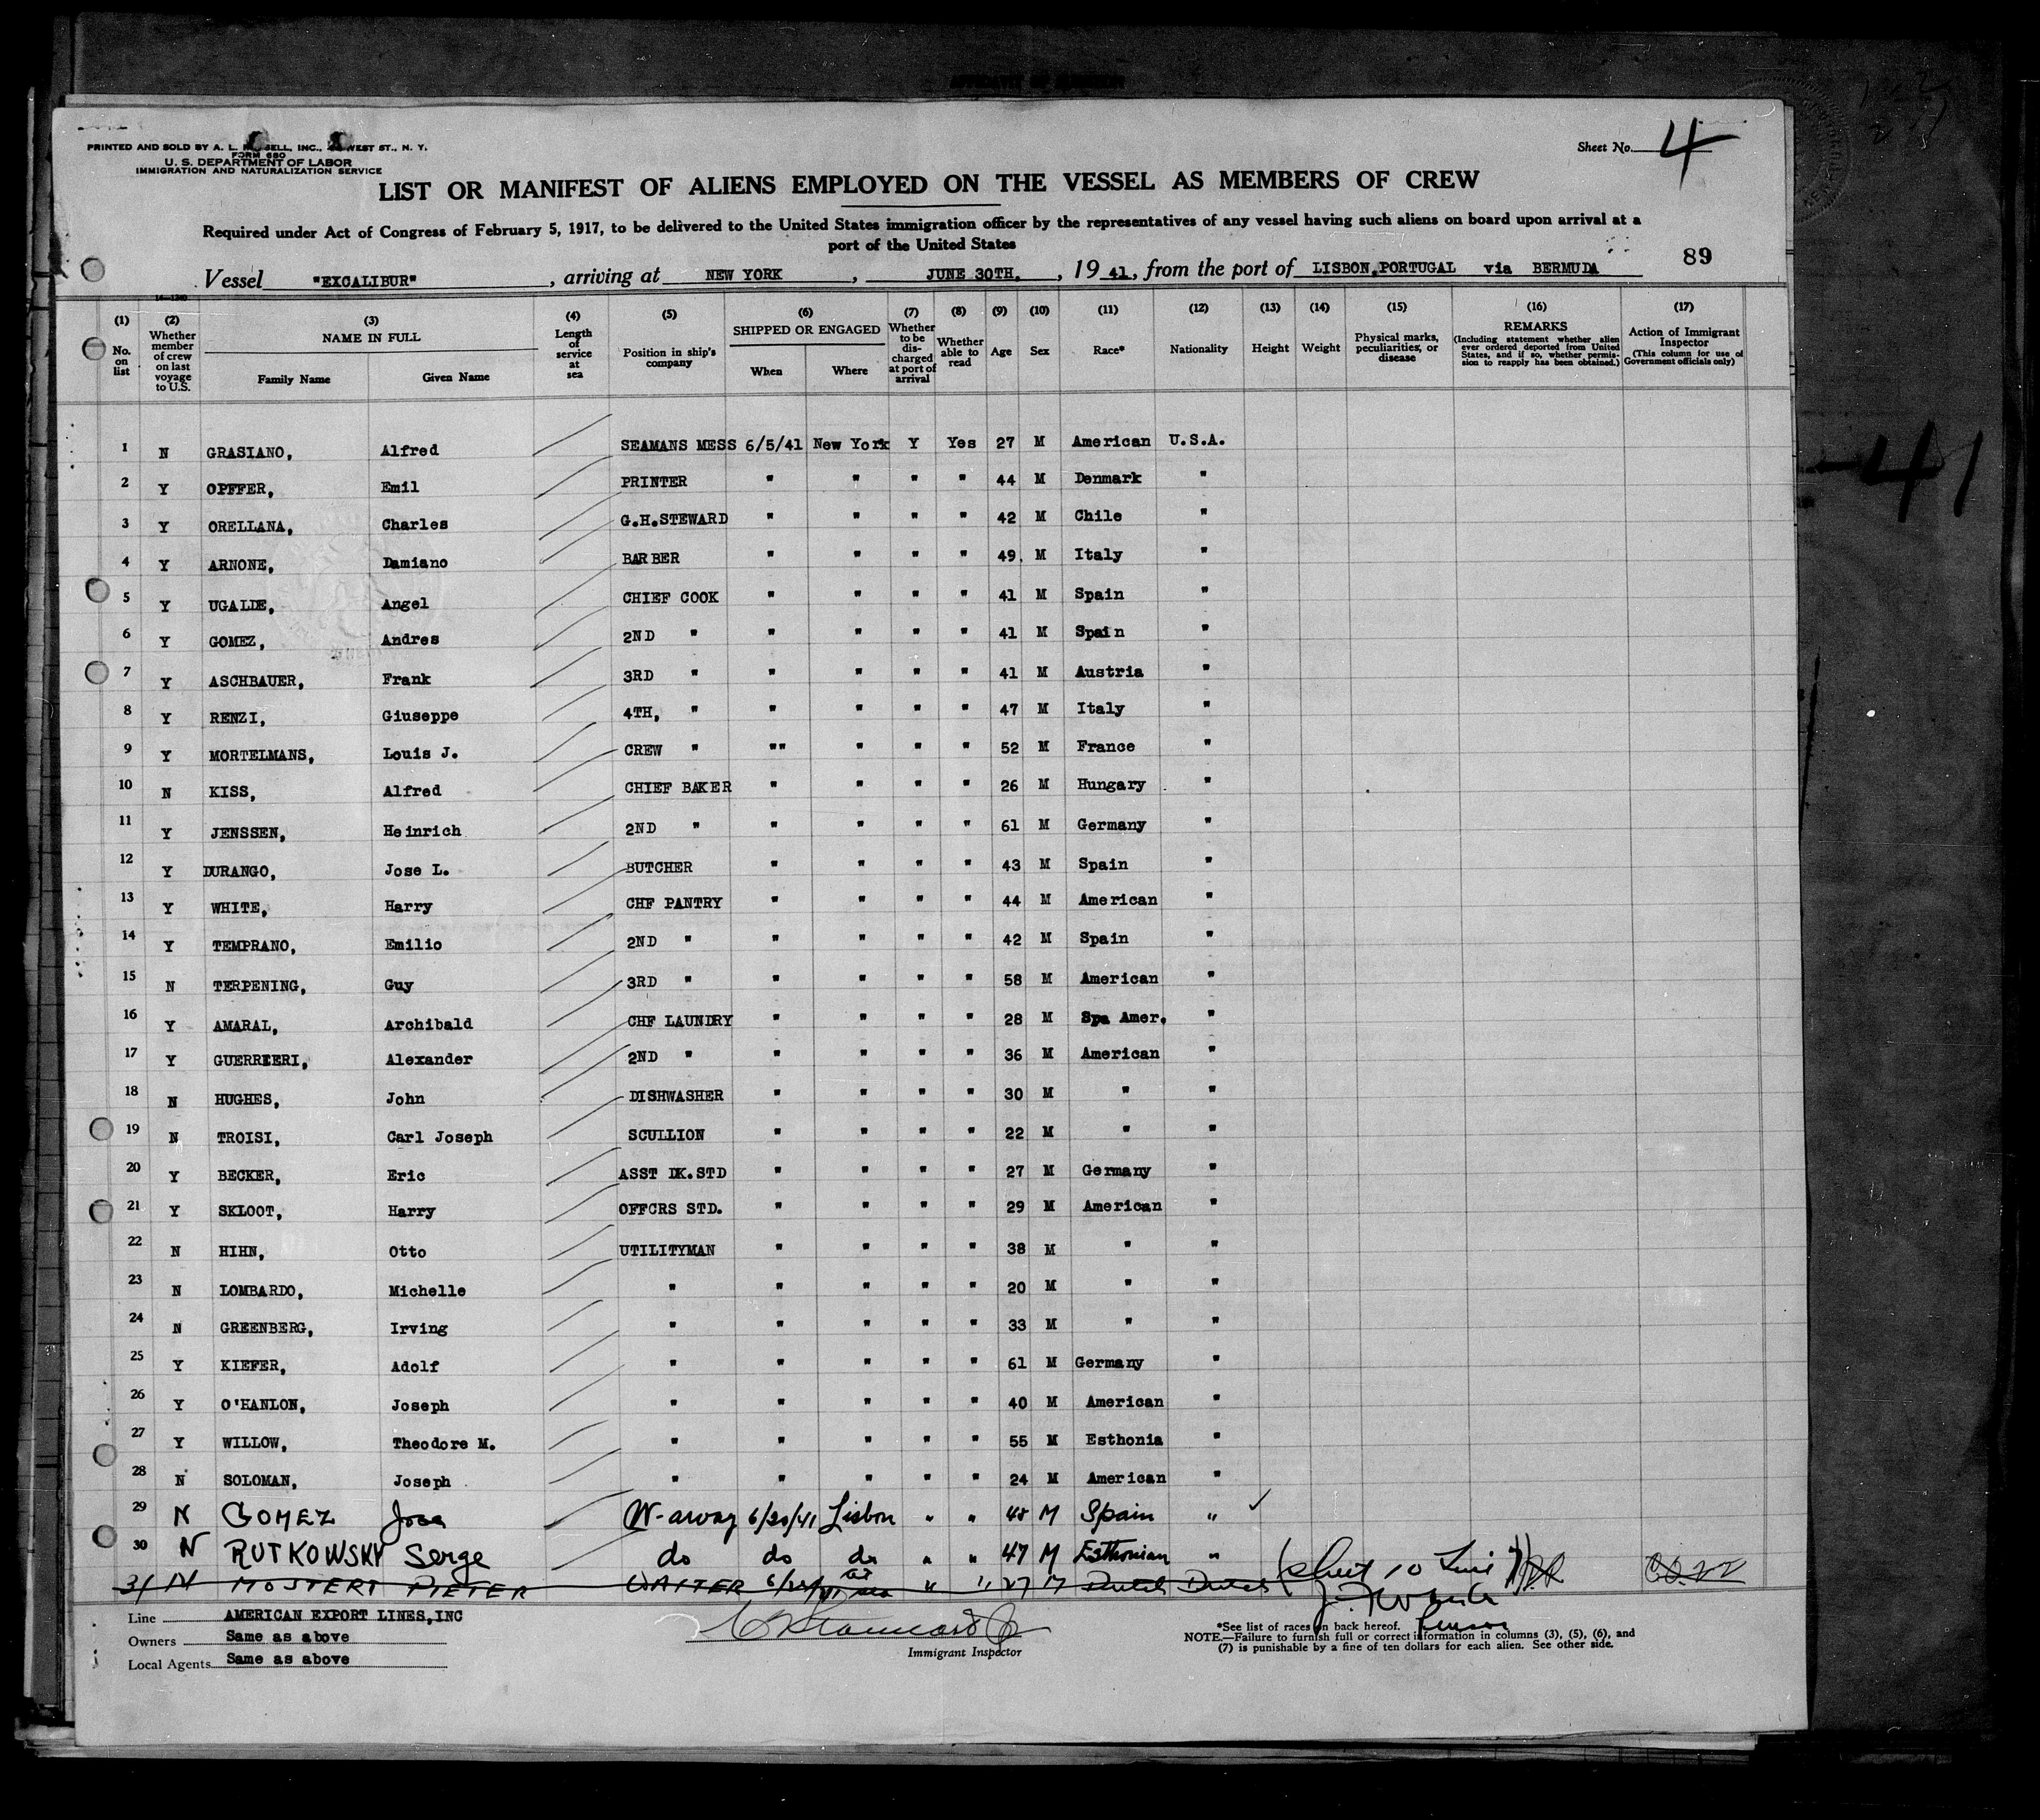 PRINTED AND SOLD BY A. L. SELL, INC., WEST ST., N. Y.
FORM 680
U. S. DEPARTMENT OF LABOR
IMMIGRATION AND NATURALIZATION SERVICE
Sheet No. 4
LIST OR MANIFEST OF ALIENS EMPLOYED ON THE VESSEL AS MEMBERS OF CREW
Required under Act of Congress of February 5, 1917, to be delivered to the United States immigration officer by the representatives of any vessel having such aliens on board upon arrival at a
port of the United States
89
Vessel "EXCALIBUR", arriving at NEW YORK, JUNE 30TH., 19 41, from the port of LISBON, PORTUGAL via BERMUDA
(1) No. on list (2) Whether member of crew on last voyage to U.S. (3) NAME IN FULL Family Name Given Name (4) Length of service at sea (5) Position in ship's company (6) SHIPPED OR ENGAGED When Where (7) Whether to be discharged at port of arrival (8) Whether able to read (9) Age (10) Sex (11) Race* (12) Nationality (13) Height (14) Weight (15) Physical marks, peculiarities, or disease (16) REMARKS (Including statement whether alien ever ordered deported from United States, and if so, whether permission to reapply has been obtained.) (17) Action of Immigrant Inspector (This column for use of Government officials only)
1 N GRASIANO, Alfred SEAMANS MESS 6/5/41 New York Y Yes 27 M American U.S.A.
2 Y OPFFER, Emil PRINTER " " " " 44 M Denmark "
3 Y ORELLANA, Charles G.H.STEWARD " " " " 42 M Chile "
4 Y ARNONE, Damiano BARBER " " " " 49. M Italy "
5 Y UGALDE, Angel CHIEF COOK " " " " 41 M Spain "
6 Y GOMEZ, Andres 2ND " " " " " 41 M Spain "
7 Y ASCHBAUER, Frank 3RD " " " " " 41 M Austria "
8 Y RENZI, Giuseppe 4TH, " " " " " 47 M Italy "
9 Y MORTELMANS, Louis J. CREW " "" " " " 52 M France "
10 N KISS, Alfred CHIEF BAKER " " " " 26 M Hungary "
11 Y JENSSEN, Heinrich 2ND " " " " " 61 M Germany "
12 Y DURANGO, Jose L. BUTCHER " " " " 43 M Spain "
13 Y WHITE, Harry CHF PANTRY " " " " 44 M American "
14 Y TEMPRANO, Emilio 2ND " " " " " 42 M Spain "
15 N TERPENING, Guy 3RD " " " " " 58 M American "
16 Y AMARAL, Archibald CHF LAUNDRY " " " " 28 M Spa Amer. "
17 Y GUERRIERI, Alexander 2ND " " " " " 36 M American "
18 N HUGHES, John DISHWASHER " " " " 30 M " "
19 N TROISI, Carl Joseph SCULLION " " " " 22 M " "
20 Y BECKER, Eric ASST DK.STD " " " " 27 M Germany "
21 Y SKLOOT, Harry OFFCRS STD. " " " " 29 M American "
22 N HIHN, Otto UTILITYMAN " " " " 38 M " "
23 N LOMBARDO, Michelle " " " " " 20 M " "
24 N GREENBERG, Irving " " " " " 33 M " "
25 Y KIEFER, Adolf " " " " " 61 M Germany "
26 Y O'HANLON, Joseph " " " " " 40 M American "
27 Y WILLOW, Theodore M. " " " " " 55 M Esthonia "
28 N SOLOMAN, Joseph " " " " " 24 M American "
29 N GOMEZ Jose W-away 6/20/41 Lisbon " " 48 M Spain " ✓
30 N RUTKOWSKY Serge do do do " " 47 M Esthonian "
31 N MOSTERT PIETER WAITER " " 27 M Dutch Dutch (Sheet 10 Line
Line AMERICAN EXPORT LINES,INC
Owners Same as above
Local Agents Same as above
Immigrant Inspector
*See list of races on back hereof.
NOTE.—Failure to furnish full or correct information in columns (3), (5), (6), and
(7) is punishable by a fine of ten dollars for each alien. See other side.
-41